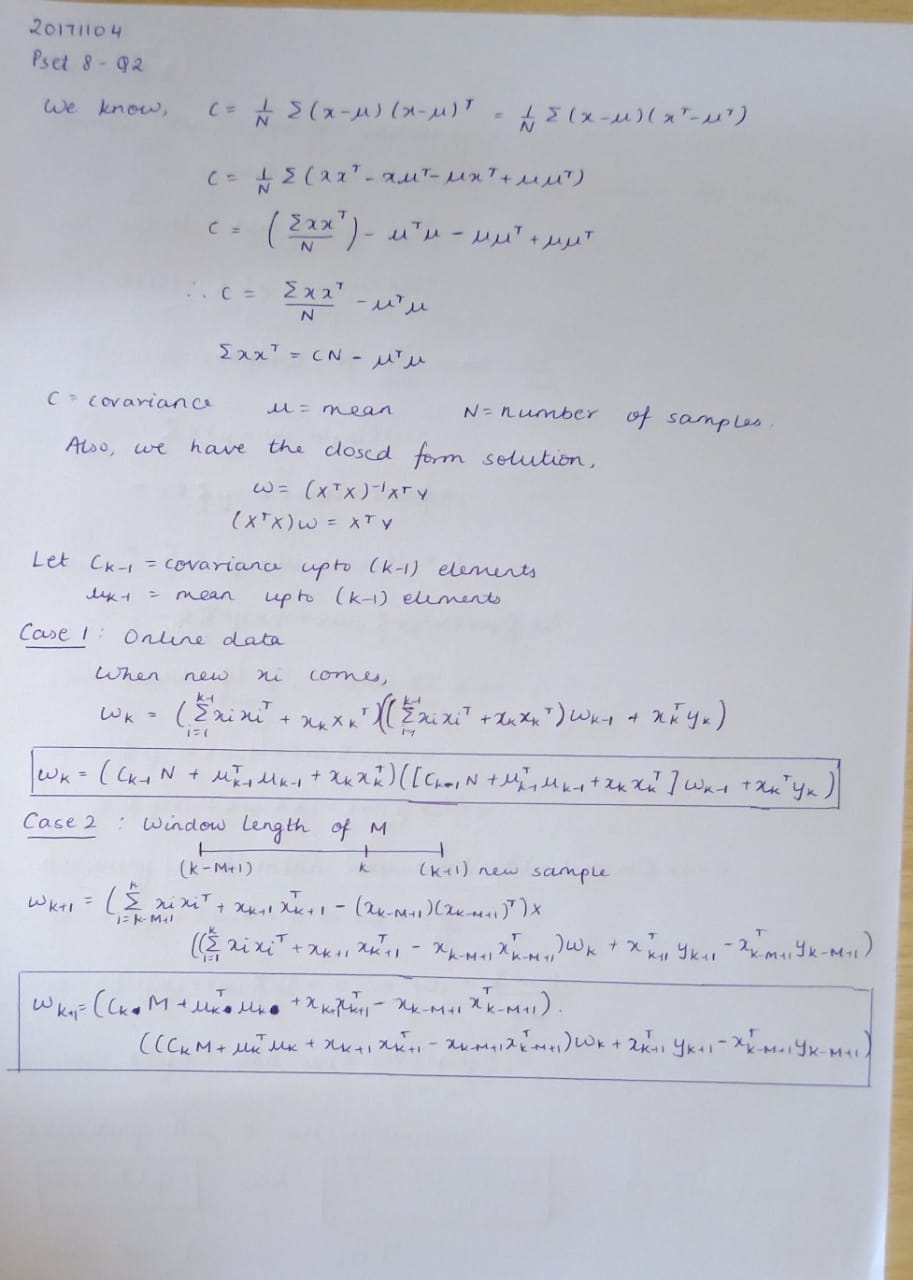 20171104
Pset 8 - Q2
We know, C = 1/N Σ(x-μ)(x-μ)ᵀ = 1/N Σ(x-μ)(xᵀ-μᵀ)
C = 1/N Σ(xxᵀ - xμᵀ - μxᵀ + μμᵀ)
C = (Σxxᵀ/N) - μᵀμ - μμᵀ + μμᵀ
∴ C = Σxxᵀ/N - μᵀμ
Σxxᵀ = CN - μᵀμ
C = covariance μ = mean N = number of samples.
Also, we have the closed form solution,
ω = (XᵀX)⁻¹XᵀY
(XᵀX)ω = XᵀY
Let C_{k-1} = covariance upto (k-1) elements
μ_{k-1} = mean upto (k-1) elements
Case 1: Online data
When new xi comes,
ω_k = (Σ_{i=1}^{k-1} xi xiᵀ + x_k x_kᵀ)((Σ_{i=1}^{k-1} xi xiᵀ + x_k x_kᵀ)ω_{k-1} + x_kᵀ y_k)
ω_k = (C_{k-1} N + μ_{k-1}ᵀ μ_{k-1} + x_k x_kᵀ)([C_{k-1} N + μ_{k-1}ᵀ μ_{k-1} + x_k x_kᵀ] ω_{k-1} + x_kᵀ y_k)
Case 2 : Window Length of M
(k-M+1) k (k+1) new sample
ω_{k+1} = (Σ_{i=k-M+1}^{k} xi xiᵀ + x_{k+1} x_{k+1}ᵀ - (x_{k-M+1})(x_{k-M+1})ᵀ) x
((Σ_{i=1}^{k} xi xiᵀ + x_{k+1} x_{k+1}ᵀ - x_{k-M+1} x_{k-M+1}ᵀ)ω_k + x_{k+1}ᵀ y_{k+1} - x_{k-M+1}ᵀ y_{k-M+1})
ω_{k+1} = (C_k M + μ_kᵀ μ_k + x_{k+1} x_{k+1}ᵀ - x_{k-M+1} x_{k-M+1}ᵀ).
(((C_k M + μ_kᵀ μ_k + x_{k+1} x_{k+1}ᵀ - x_{k-M+1} x_{k-M+1}ᵀ)ω_k + x_{k+1}ᵀ y_{k+1} - x_{k-M+1}ᵀ y_{k-M+1})